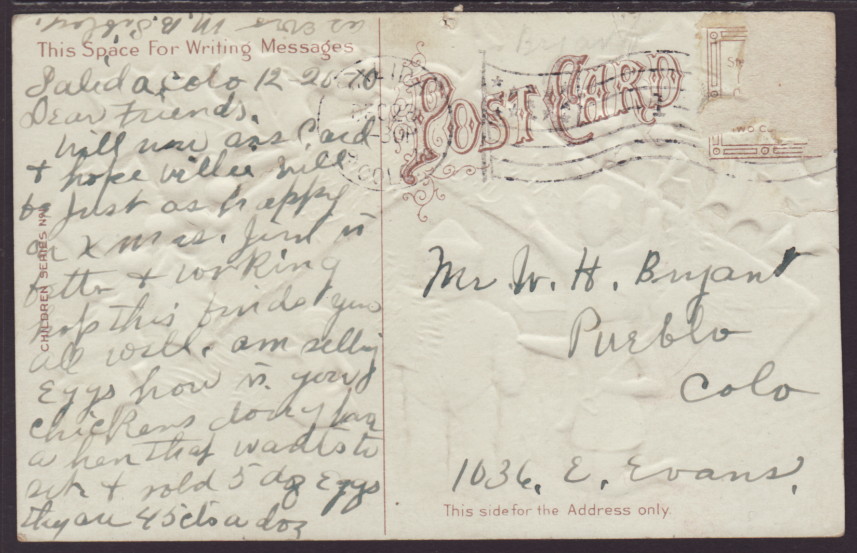 as ever M. B. Sibley
This Space For Writing Messages
Salida, Colo 12-20-10
Dear Friends.
Will now ans Card
& hope will
be Just as happy
on Xmas. Jim is
better & working
hope this finds you
all well. am selling
Eggs how is your
chickens doing
a hen that wants to
set & sold 5 doz Eggs
they are 45cts a doz
CHILDREN SERIES No
POST CARD
Bryant
DEC
COLO
Mr. W. H. Bryant
Pueblo
Colo
1036. E. Evans.
This side for the Address only.